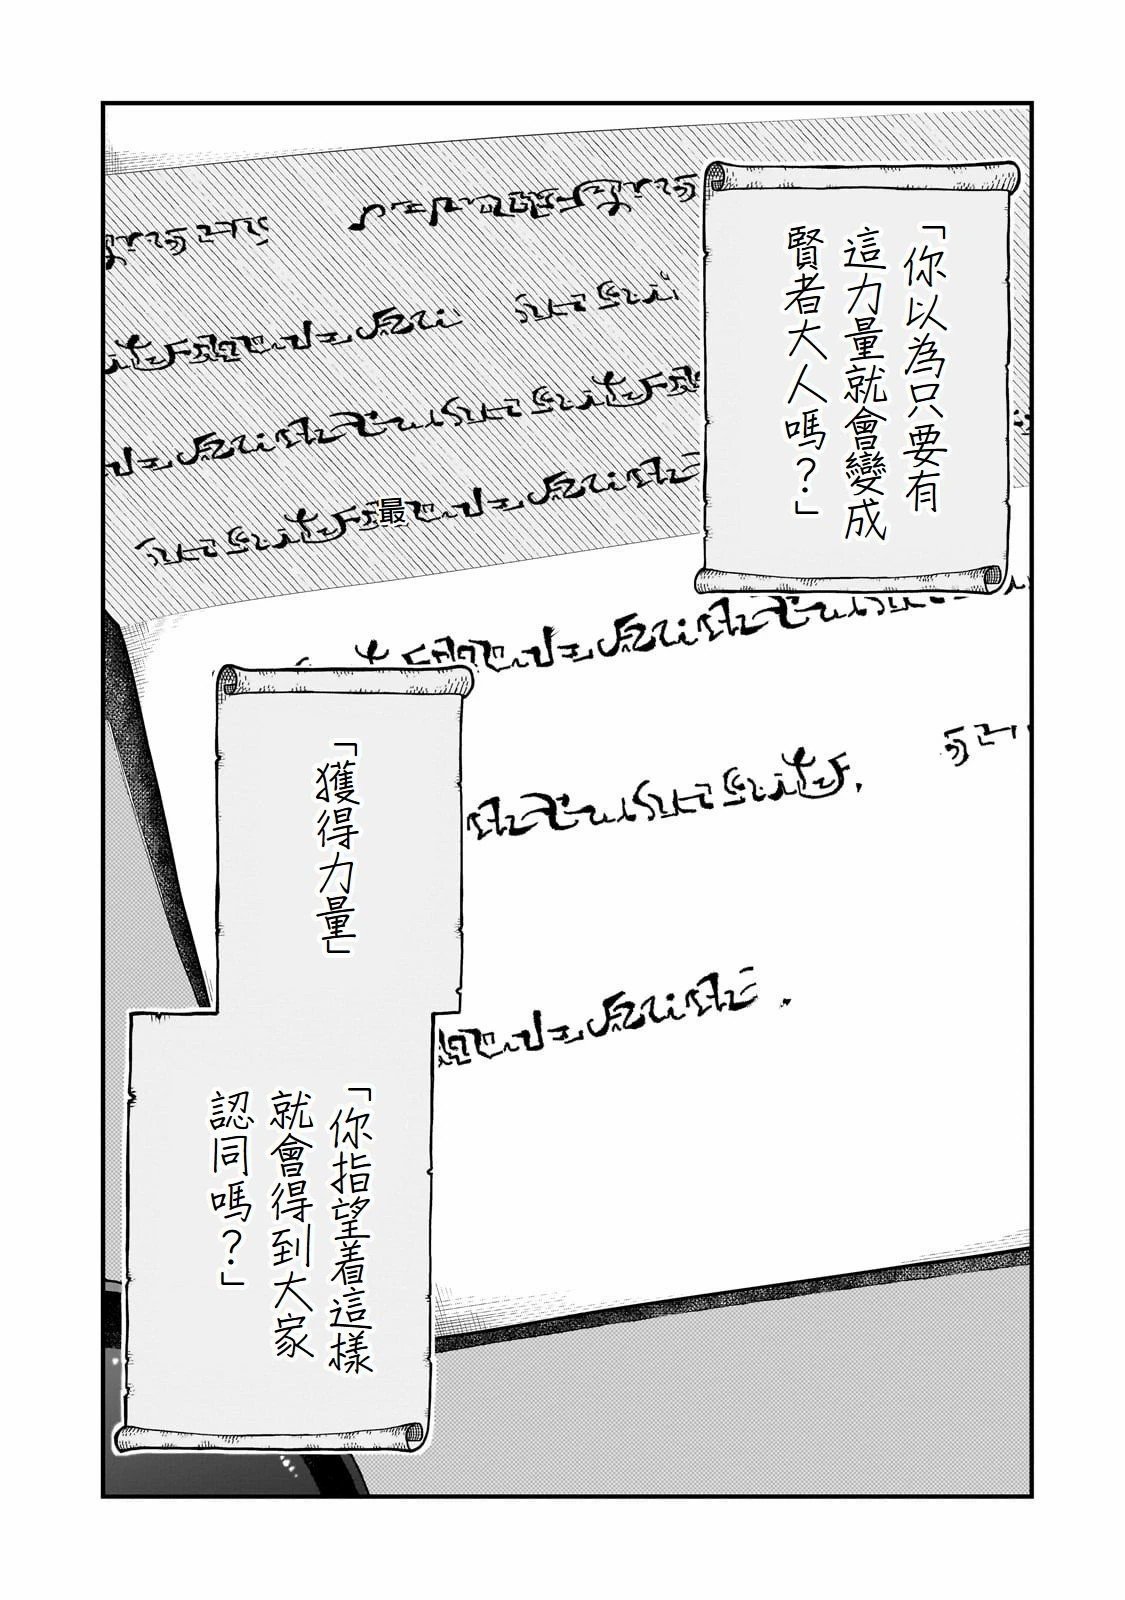 「你以為只要有
這力量就會變成
賢者大人嗎？」
最
「獲得力量」
「你指望着這樣
就會得到大家
認同嗎？」